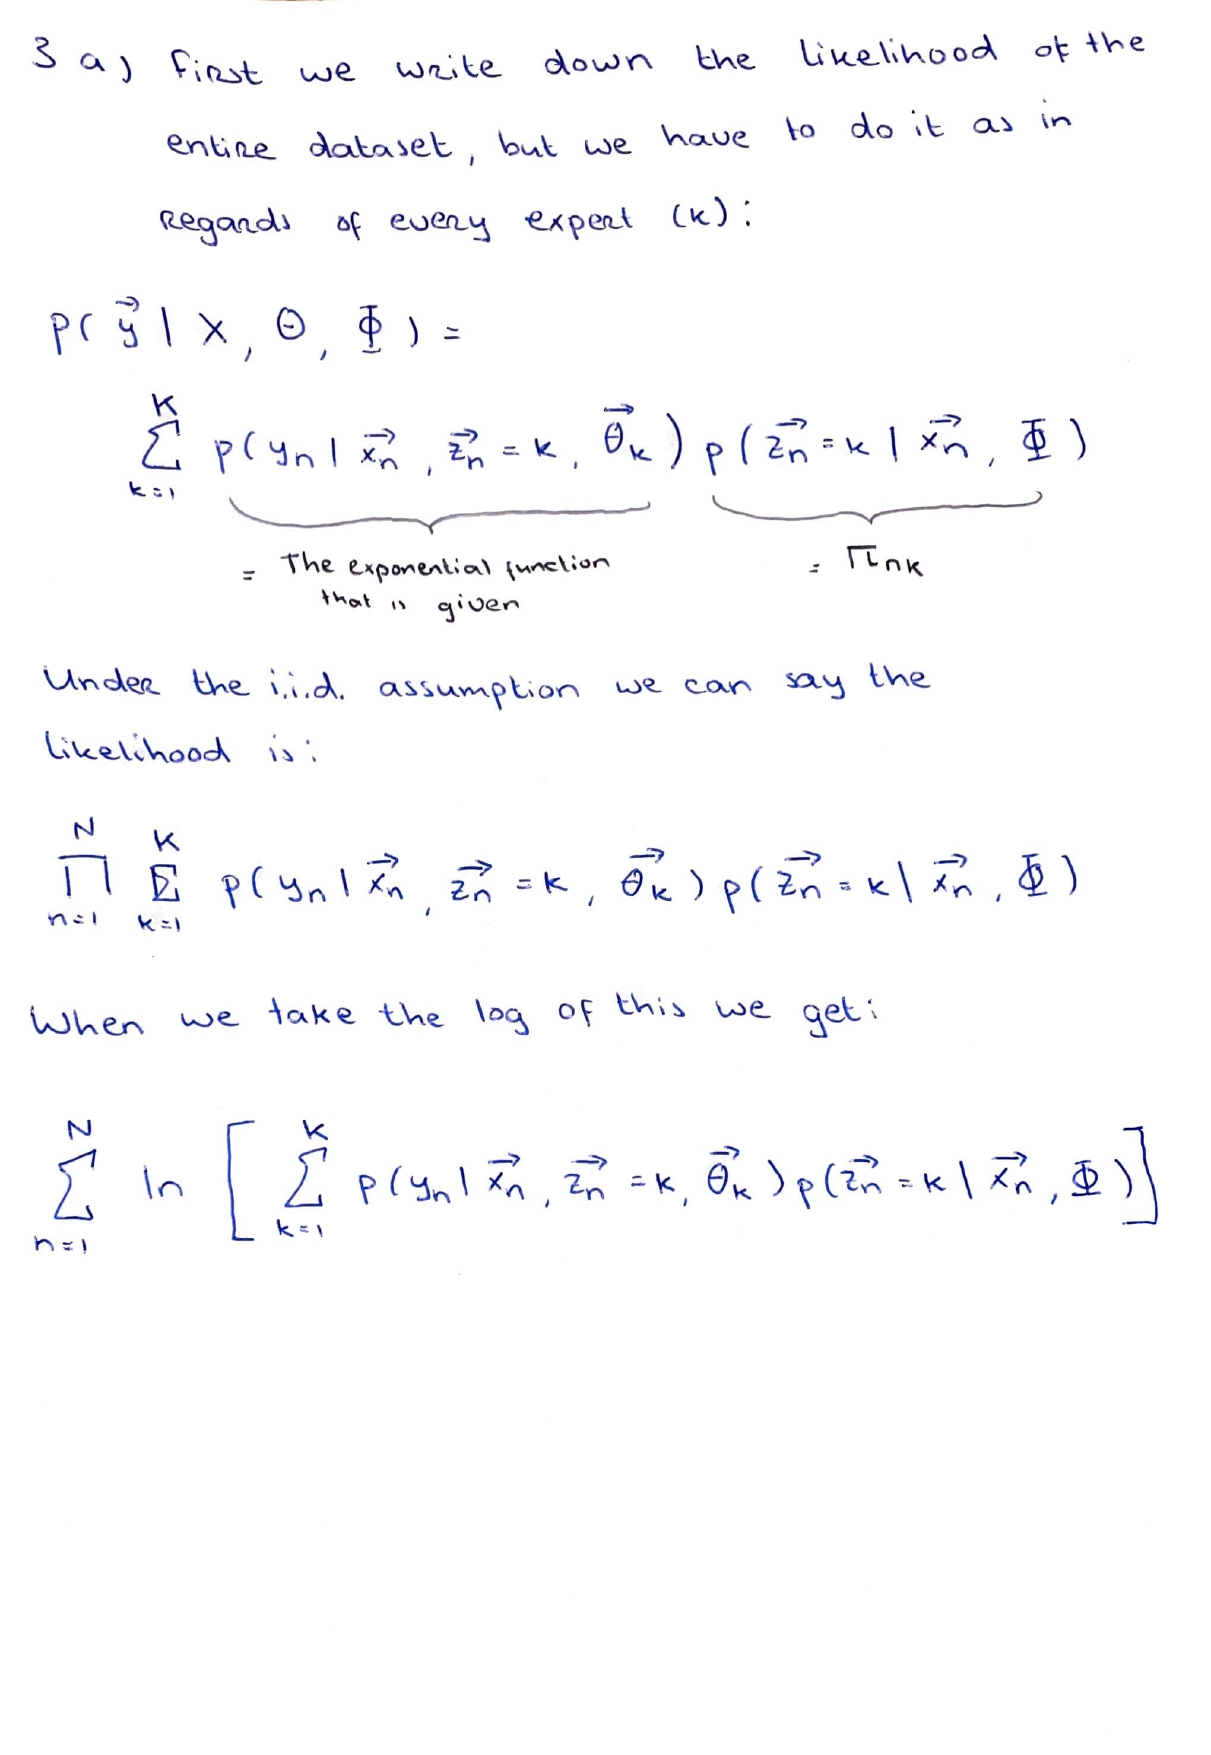 3 a) First we write down the likelihood of the
entire dataset, but we have to do it as in
Regards of every expert (k):
p(y⃗ | X, Θ, Φ) =
∑_{k=1}^{K} p(y_n | x⃗_n, z⃗_n = k, θ⃗_k) p(z⃗_n = k | x⃗_n, Φ)
= The exponential function that is given
= π_nk
Under the i.i.d. assumption we can say the
likelihood is:
∏_{n=1}^{N} ∑_{k=1}^{K} p(y_n | x⃗_n, z⃗_n = k, θ⃗_k) p(z⃗_n = k | x⃗_n, Φ)
When we take the log of this we get:
∑_{n=1}^{N} ln [ ∑_{k=1}^{K} p(y_n | x⃗_n, z⃗_n = k, θ⃗_k) p(z⃗_n = k | x⃗_n, Φ) ]